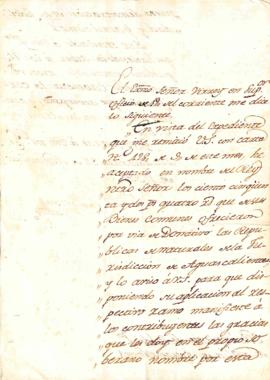 El Exmo Señor Virrey con sup.or
oficio de 12 del corriente me dice
lo siguiente.
En vista del Expediente
que me remitió V.S. con carta
N.o de 3 de este mes, he
aceptado en nombre del Rey
nrô Señor los ciento cinquen
ta y dos p.s quatro r.s que de sus
Bienes Comunes ofrecieron
por via de Donativo las Repu
blicas de naturales de la
Jurisdiccion de Aguascalientes
y lo aviso á V.S. para que dis
poniendo su aplicacion al res
pectivo ramo manifieste á
los contribuyentes las gracias
que les doy en el propio So
berano nombre por esta